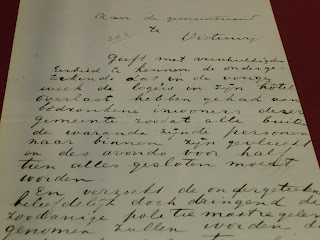 Aan de gemeenteraad
te
Oisterwijk
Geeft met verschuldigden
Eerbied te kennen de onderge
tekende dat in de vorige
week de logées in zijn hotel
overlast hebben gehad van
bedronkene inwoners dezer
gemeente zoodat alle buiten
de waranda zijnde personen
naar binnen zijn gevlucht
en des avonds voor half
tien alles gesloten moest
worden
En verzoekt de ondergeteekende
beleefdelijk doch dringend de
zoodanige politie maatregelen
genomen zullen worden